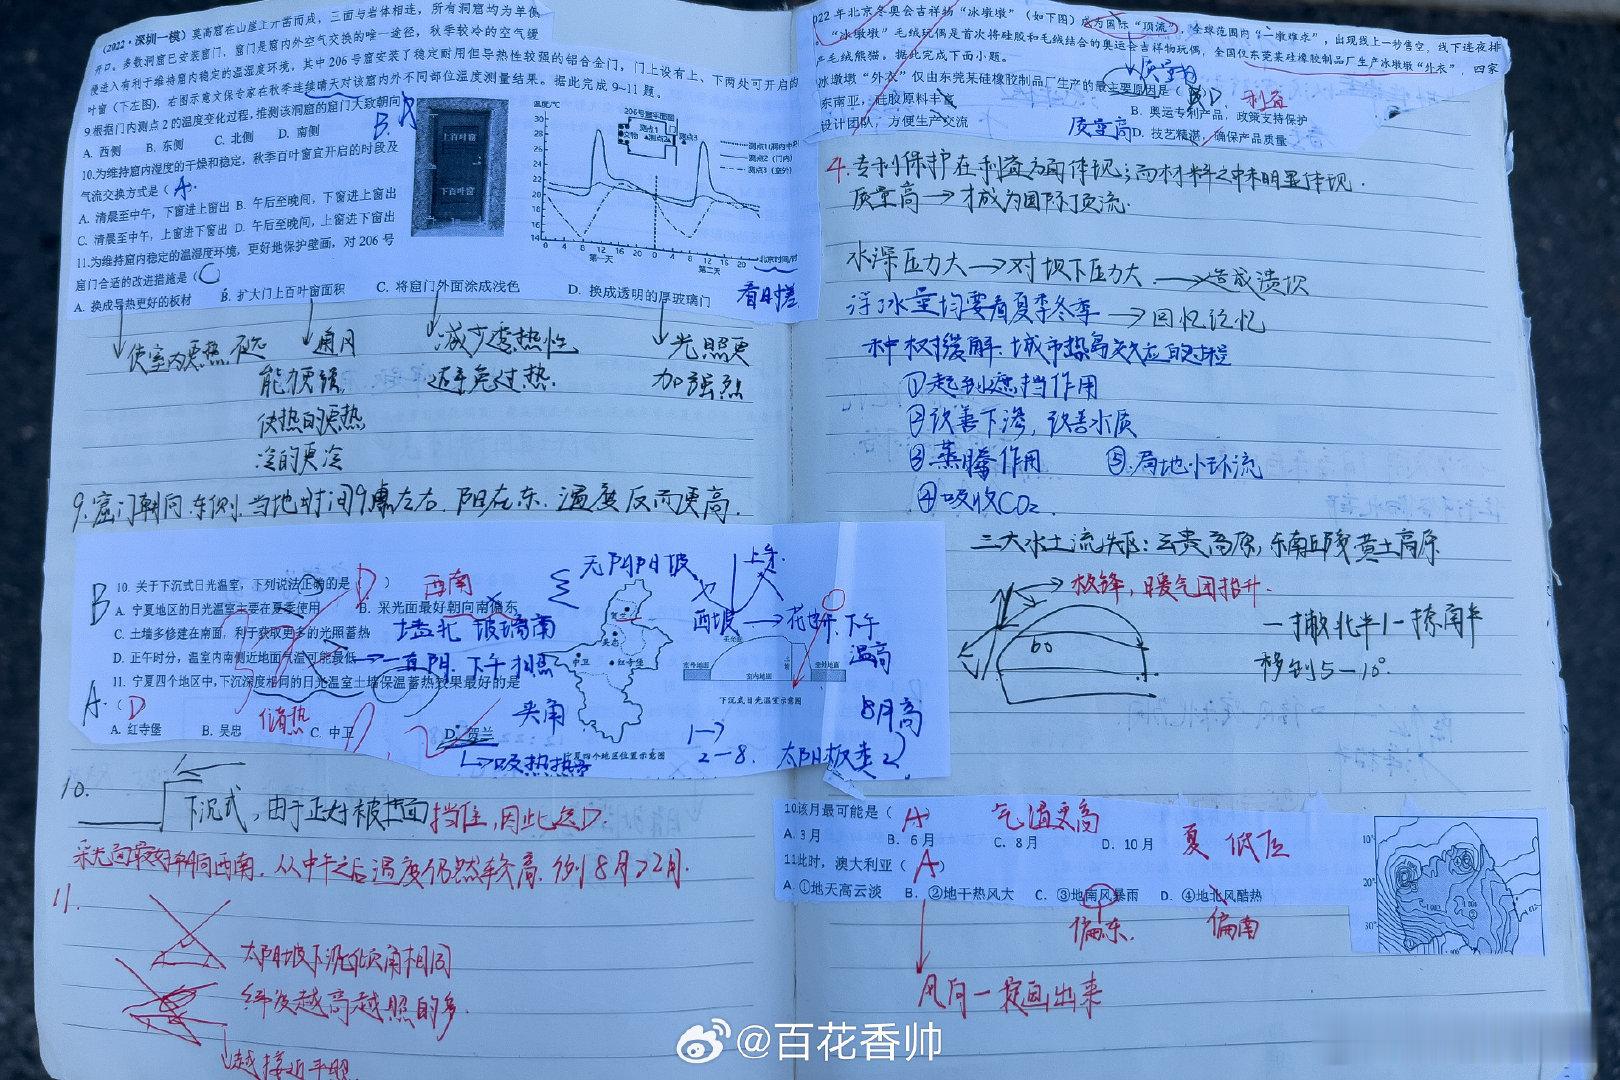 (2022·深圳一模)莫高窟在山崖上开凿而成,三面与岩体相连,所有洞窟均为单侧
开口。多数洞窟已安装窟门,窟门是窟内外空气交换的唯一途径,秋季较冷的空气缓
慢进入有利于维持窟内稳定的温湿度环境,其中206号窟安装了稳定耐用但导热性较强的铝合金门,门上设有上、下两处可开启的
叶窗(下左图).右图示意文保专家在秋季连续晴天对该窟内外不同部位温度测量结果。据此完成9~11题。
9根据门内测点2的温度变化过程,推测该洞窟的窟门大致朝向
B.
A. 西侧 B. 东侧 C. 北侧 D. 南侧
10.为维持窟内湿度的干燥和稳定,秋季百叶窗宜开启的时段及
气流交换方式是(A.
A. 清晨至中午,下窗进上窗出 B. 午后至晚间,下窗进上窗出
C. 清晨至中午,上窗进下窗出 D. 午后至晚间,上窗进下窗出
11.为维持窟内稳定的温湿度环境,更好地保护壁画,对206号
窟门合适的改进措施是(C
A. 换成导热更好的板材 B. 扩大门上百叶窗面积 C. 将窟门外面涂成浅色 D. 换成透明的厚玻璃门
上百叶窗
下百叶窗
温度/℃
206号窟平面图
测点1
测点2
测点3
测点1(洞内中
测点2(门内)
测点3(室外)
30
28
26
24
22
20
18
16
14
0 4 8 12 16 20 0 4 8 12 16 20 北京时间/
第一天 第二天
看时差
使室内更热
通风
能力更强,
使热的更热
冷的更冷
减少受热性
避免过热.
光照更
加强点
9.窟门朝向.东侧.当地时间9点左右.阳在东.温度反而更高.
B 10. 关于下沉式日光温室,下列说法正确的是( D ) 西南
A. 宁夏地区的日光温室主要在夏季使用 B. 采光面最好朝向南偏东
C. 土墙多修建在南面,利于获取更多的光照蓄热 墙北 玻璃南
D. 正午时分,温室内南侧近地面气温可能最低 一直阴.下午相照
11. 宁夏四个地区中,下沉深度相同的日光温室土墙保温蓄热效果最好的是
A. ( D
A. 红寺堡 B. 吴忠 储热 C. 中卫 D. 贺兰
吸热
夹角
无阴阳坡
贺兰
吴忠
中卫
红寺堡
宁夏四个地区位置示意图
西坡 花
下午
温高
室外地面
室内地面
室外地面
下沉式日光温室示意图
8月高
1
2-8. 太阳
10.
下沉式,由于正好被土面挡住,因此选D.
采光面最好朝向西南.从中午之后温度仍然较高.例8月>2月.
11.
太阳坡下沉
纬度越高越照的多.
越接近平照
022年北京冬奥会吉祥物“冰墩墩”(如下图)成为国际“顶流”,全球范围内“一墩难求”,出现线上一秒售空,线下连夜排
。“冰墩墩”毛绒玩偶是首次将硅胶和毛绒结合的奥运会吉祥物玩偶,全国仅东莞某硅橡胶制品厂生产冰墩墩“外衣”,四家
产毛绒熊猫。据此完成下面小题。
质量
冰墩墩“外衣”仅由东莞某硅橡胶制品厂生产的最主要原因是( D. 利益
东南亚,硅胶原料丰富 B. 奥运专利产品,政策支持保护
设计团队,方便生产交流 质量高 D. 技艺精湛,确保产品质量
4.专利保护在利益方面体现;而材料之中未明显体现.
质量高→才成为国际顶流.
水深压力大→对坝下压力大→造成溃坝
洋流水量均要看夏季冬季→回忆记忆
种树缓解.城市热岛效应的过程
①起到遮挡作用
②改善下渗,改善水质
③蒸腾作用 ⑤.局地小环流
④吸收CO₂.
三大水土流失区:云贵高原,东南丘陵黄土高原
极锋,暖气团抬升.
60
移到5-10°
10.该月最可能是( A ) 气温更高
A. 3月 B. 6月 C. 8月 D. 10月 夏 低压
11此时,澳大利亚( A )
A. ①地天高云淡 B. ②地干热风大 C. ③地南风暴雨 D. ④地北风酷热
偏东. 偏南
风向一定画出来
10°
20°
30°
@百花香帅